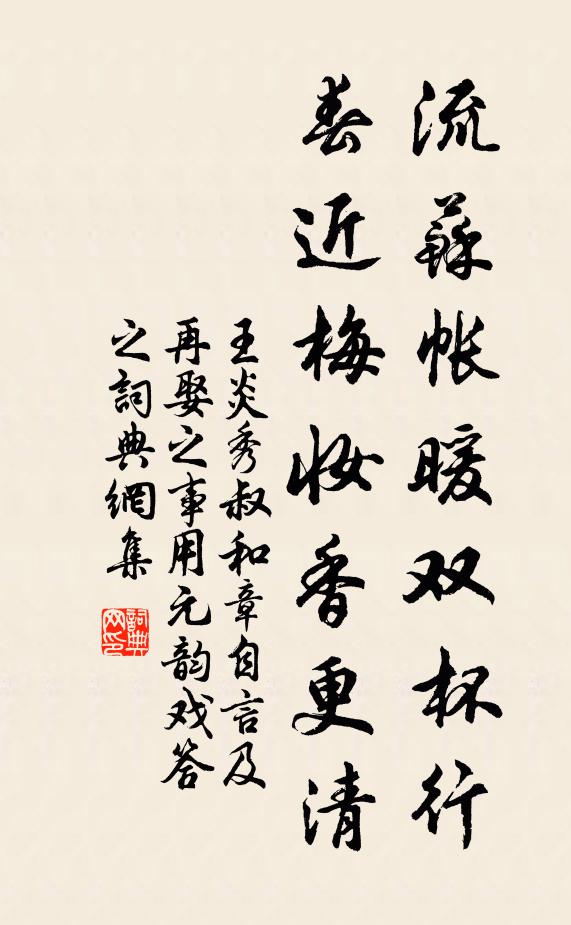 流蘇帐暖双杯行
春近梅妆香更清
王炎秀叔和章自言及
再娶之事用元韵戏答
之詞典網集
詞典网印